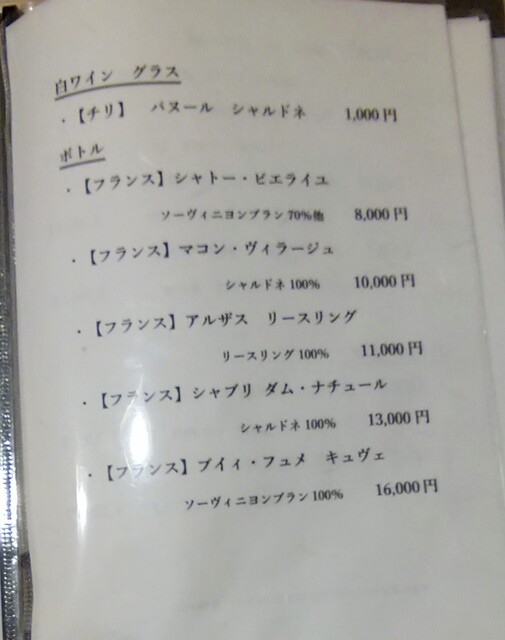 白ワイン　グラス
・【チリ】　パヌール　シャルドネ　1,000円
ボトル
・【フランス】シャトー・ピエライユ
ソーヴィニヨンブラン70%他　8,000円
・【フランス】マコン・ヴィラージュ
シャルドネ100%　10,000円
・【フランス】アルザス　リースリング
リースリング100%　11,000円
・【フランス】シャブリ ダム・ナチュール
シャルドネ100%　13,000円
・【フランス】プイィ・フュメ　キュヴェ
ソーヴィニヨンブラン100%　16,000円